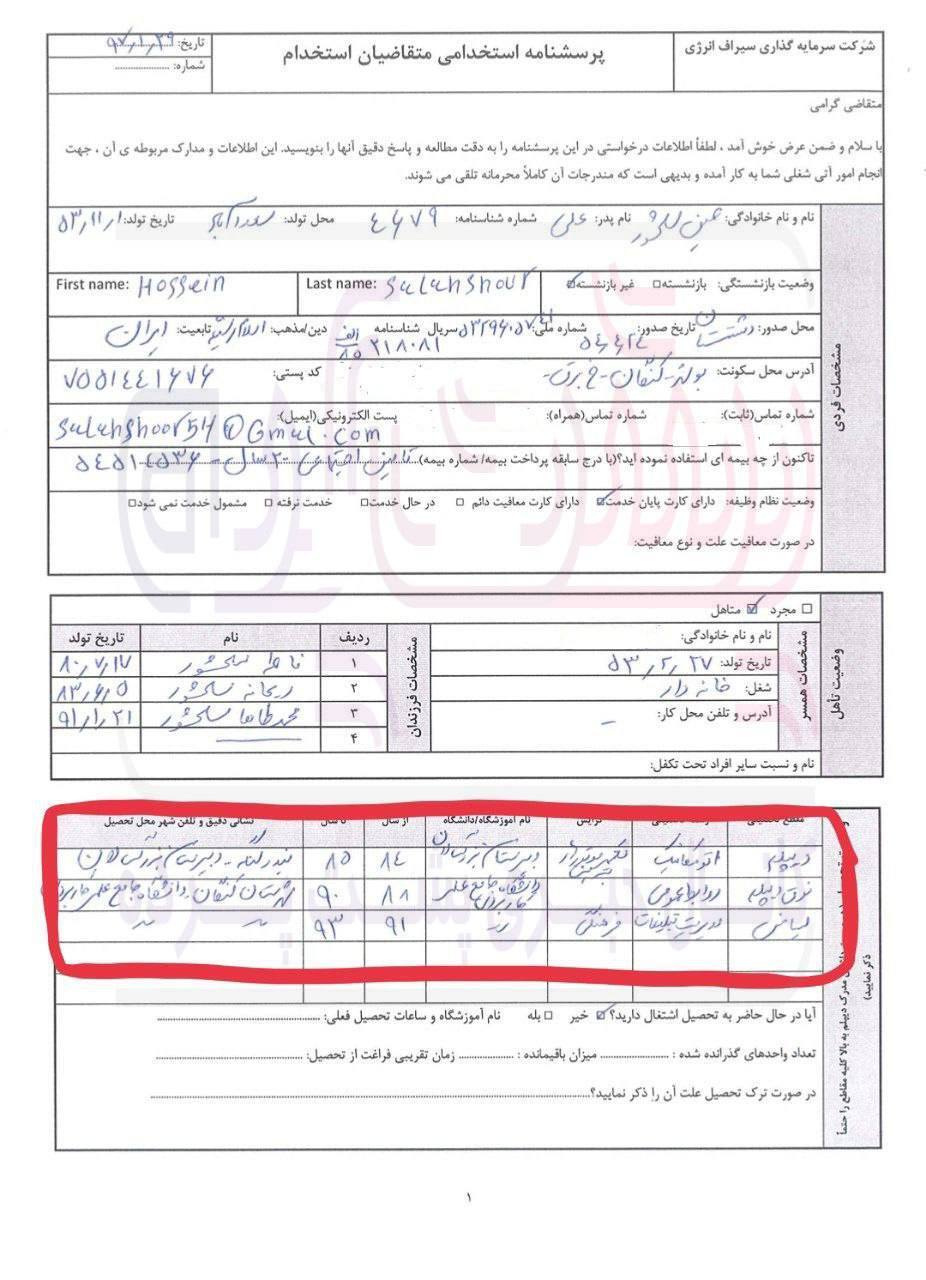 شرکت سرمایه گذاری سیراف انرژی
پرسشنامه استخدامی متقاضیان استخدام
تاریخ: ۹۷/۱/۲۹
شماره: ..................
متقاضی گرامی
با سلام و ضمن عرض خوش آمد ، لطفاً اطلاعات درخواستی در این پرسشنامه را به دقت مطالعه و پاسخ دقیق آنها را بنویسید. این اطلاعات و مدارک مربوطه ی آن ، جهت
انجام امور آتی شغلی شما به کار آمده و بدیهی است که مندرجات آن کاملاً محرمانه تلقی می شوند.
مشخصات فردی
نام و نام خانوادگی: حسین سلحشور نام پدر: علی شماره شناسنامه: ٤٦٧٩ محل تولد: سعدآباد تاریخ تولد: ۵۳/۱۱/۱
وضعیت بازنشستگی: بازنشسته غیر بازنشسته Last name: Salahshour First name: Hossein
محل صدور: دشتستان تاریخ صدور: شماره ملی: سریال شناسنامه الف ۸۵ ۲۱۸۰۸۱ دین/مذهب: اسلام شیعه تابعیت: ایران
آدرس محل سکونت: بوشهر - کنگان - خ برق - کد پستی: ۷۵۵۱٤٤۱۶۷۶
شماره تماس(ثابت): شماره تماس(همراه): پست الکترونیکی(ایمیل):
Salahshoor54@Gmail.com
تاکنون از چه بیمه ای استفاده نموده اید؟(با درج سابقه پرداخت بیمه/ شماره بیمه) تامین اجتماعی - ۲۰ سال -
وضعیت نظام وظیفه: دارای کارت پایان خدمت دارای کارت معافیت دائم در حال خدمت خدمت نرفته مشمول خدمت نمی شود
در صورت معافیت علت و نوع معافیت:
وضعیت تأهل
مجرد متاهل
مشخصات همسر
نام و نام خانوادگی:
تاریخ تولد: ۵۳/۲/۲۷
شغل: خانه دار
آدرس و تلفن محل کار: –
مشخصات فرزندان
ردیف نام تاریخ تولد
۱ فاطمه سلحشور ۸۰/۷/۱۷
۲ ریحانه سلحشور ۸۳/۶/۵
۳ محمدطاها سلحشور ۹۱/۱/۲۱
۴
نام و نسبت سایر افراد تحت تکفل:
مقطع تحصیلی رشته تحصیلی گرایش نام آموزشگاه/دانشگاه از سال تا سال نشانی دقیق و تلفن شهر محل تحصیل
دیپلم اتومکانیک دبیرستان بزرگسالان ۸٤ ۸۵ بندر کنگان - دبیرستان بزرگسالان
فوق دیپلم روابط عمومی دانشگاه جامع علمی کاربردی ۸۸ ۹۰ شهرستان کنگان - دانشگاه جامع علمی کاربردی
لیسانس مدیریت تبلیغات فرهنگی 〃 ۹۱ ۹۳ 〃 〃
مدرک دیپلم به بالا کلیه مقاطع را حتماً
ذکر نمایید)
آیا در حال حاضر به تحصیل اشتغال دارید؟ خیر بله نام آموزشگاه و ساعات تحصیل فعلی: ..................
تعداد واحدهای گذرانده شده : .................. میزان باقیمانده : .................. زمان تقریبی فراغت از تحصیل: ..................
در صورت ترک تحصیل علت آن را ذکر نمایید؟..................
۱